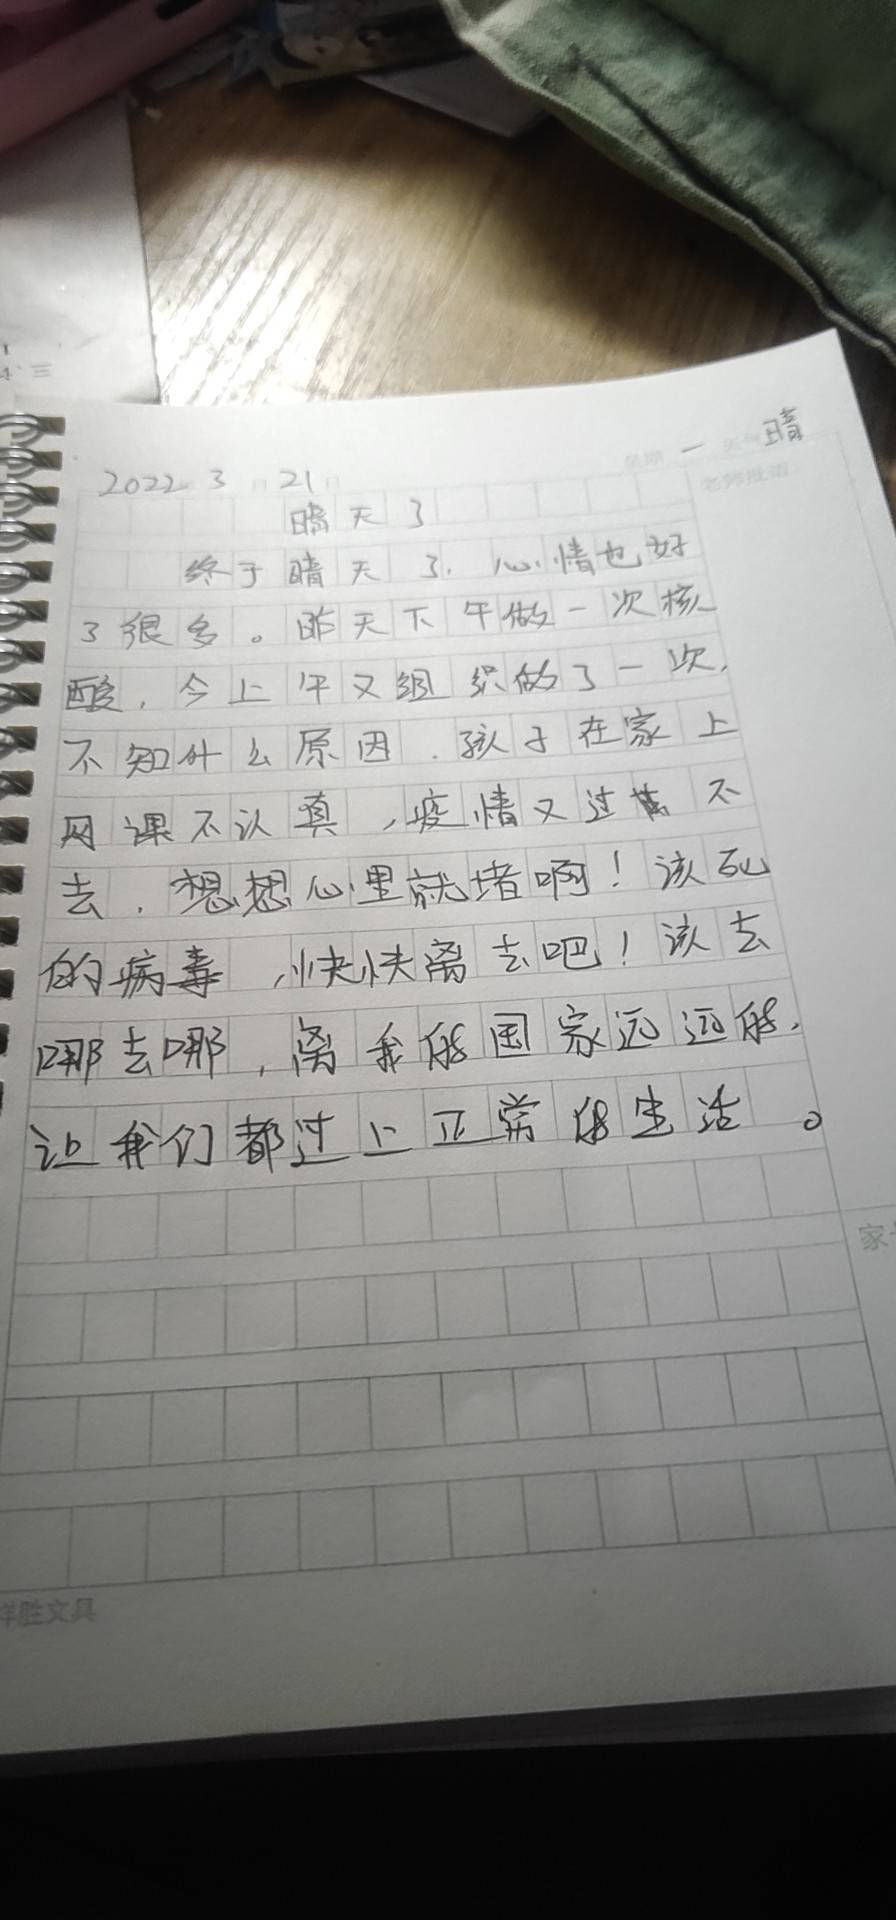 2022年3月21日
星期一 天气晴
老师批语
晴天了
终于晴天了，心情也好
了很多。昨天下午做一次核
酸，今上午又组织做了一次，
不知什么原因，孩子在家上
网课不认真，疫情又过
不
去，想想心里就堵啊！该死
的病毒，快快离去吧！该去
哪去哪，离我的国家远远的，
让我们都过上正常的生活。
家
祥胜文具